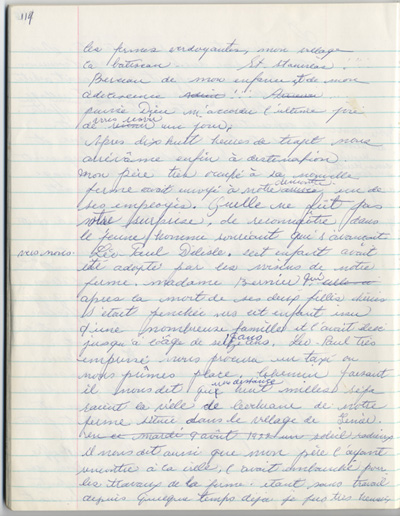 114
les prunes verdoyantes, mon village
la batiscan. St Stanislas!!
Berceau de mon enfance, et de mon
adolescence
puisse Dieu m'accorder l'ultime joie
vous revoir
de un jour.
Après dix-huit heures de trajet nous
arrivâme enfin à destination
Mon père très occupé à sa nouvelle
rencontre
ferme avait envoyé à notre un de
ses employés. Quelle ne fût pas
notre surprise, de reconnaître dans
le jeune homme souriant qui s'avançait
vers nous. Léo-Paul Delisle. cet enfant avait
été adopté par les voisins de notre
ferme. madame Bernier qui
après la mort de ses deux filles
s'était penchée vers cet enfant issu
d'une nombreuse famille et l'avait élevé
jusqu'à l'âge de ans. Léo-Paul très
empressé nous procura un taxi où
nous prîmes place, chemin faisant
une distance
il nous dit que huit milles sépa
raient la ville de de notre
ferme située dans le village de
mardi 9 août soleil radieux
il nous dit aussi que mon père l'ayant
rencontré à la ville, l'avait embauché pour
les travaux de la ferme: étant sans travail
depuis quelque temps déjà je fus très heureux